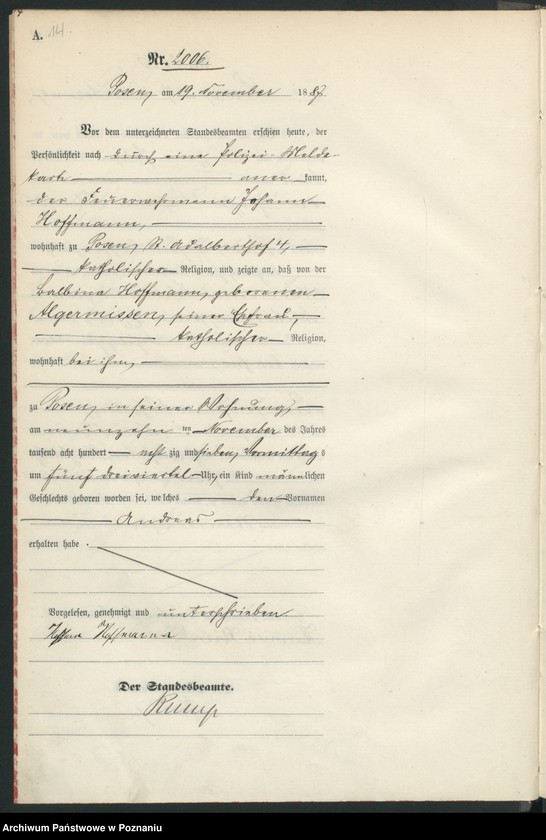 A. 14
Nr. 2006.
Posen, am 19. November 1887
Vor dem unterzeichneten Standesbeamten erschien heute, der
Persönlichkeit nach durch eine Polizei-Melde-
karte anerkannt,
der Feuerwehrmann Johann
Hoffmann,
wohnhaft zu Posen, St. Adalberthof 4,
katholischer Religion, und zeigte an, daß von der
Balbina Hoffmann, geborenen
Algermissen, seiner Ehefrau,
katholischer Religion,
wohnhaft bei ihm,
zu Posen, in seiner Wohnung,
am neunzehn ten November des Jahres
tausend acht hundert acht zig und sieben, Vormittags
um fünf dreiviertel Uhr, ein Kind männlichen
Geschlechts geboren worden sei, welches den Vornamen
Andreas
erhalten habe.
Vorgelesen, genehmigt und unterschrieben
Hoffmann
Der Standesbeamte.
Rump
Archiwum Państwowe w Poznaniu